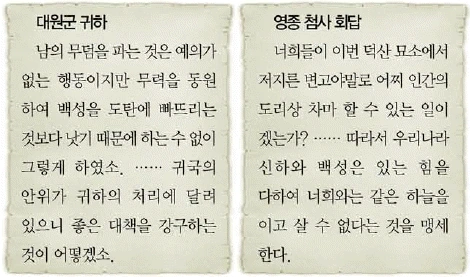 대원군 귀하
남의 무덤을 파는 것은 예의가
없는 행동이지만 무력을 동원
하여 백성을 도탄에 빠뜨리는
것보다 낫기 때문에 하는 수 없이
그렇게 하였소. …… 귀국의
안위가 귀하의 처리에 달려
있으니 좋은 대책을 강구하는
것이 어떻겠소.
영종 첨사 회답
너희들이 이번 덕산 묘소에서
저지른 변고야말로 어찌 인간의
도리상 차마 할 수 있는 일이
겠는가? …… 따라서 우리나라
신하와 백성은 있는 힘을
다하여 너희와는 같은 하늘을
이고 살 수 없다는 것을 맹세
한다.